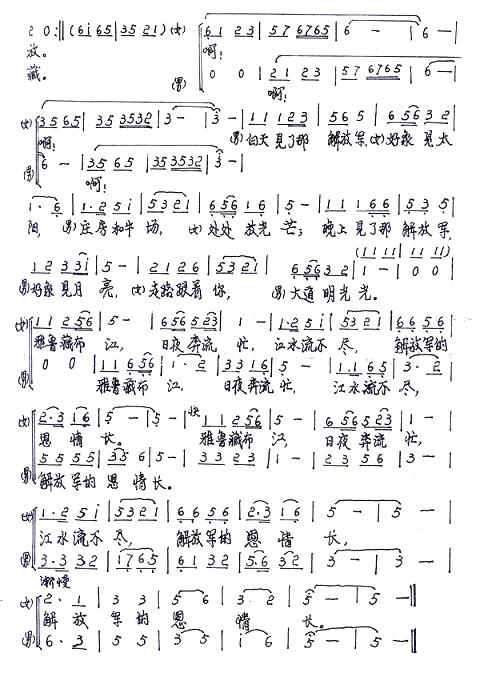 2 0 :‖ (6i 65 | 35 21) (女) 61 23 | 57 6765 | 6 — | 6 —
放。 啊!
藏。 (男) 0 0 | 21 23 | 57 6765 | 6 —
啊!
(女) 35 65 | 35 3532 | 3 — | 3 — | (男) 11 123 | 56 5 | 6 56 3 2
啊! 白天見了那 解放军, (女) 好象 見太
(男) 6 — | 35 65 | 35 3532 | 3 —
啊!
1 · 6 | 1·2 5i | 5321 | 6 56 1 6 | 5 — | 11 166 | 53 5
阳, (男) 庄房和牛 场, (女) 处处 放光 芒; 晚上 見了那 解放军,
(11 11 | 11 11)
12 33i | 5 — | 21 26 | 5321 | 6 56 32 | 1 — | 0 0
(男) 好象見月 亮, (女) 走路跟着 你, (男) 大道 明光 光。
(女) 11 2 56 | 5 — | 6 56 5 23 | 1 — | 1·2 5i | 5321 | 66 56
雅鲁藏布 江, 日夜奔流 忙, 江水流不 尽, 解放军的
(男) 0 0 | 11 6 56 | 1 · 2 | 33 16 | 5 — | 1·1 65 | 3 · 2
雅鲁藏布 江, 日夜奔流 忙, 江水流不 尽,
(女) 2·3 16 | 5 — | 5 — | 快 11 2 56 | 5 — | 6 56 5 23 | 1 —
恩 情 长。 雅鲁藏布 江, 日夜奔流 忙,
(男) 55 55 | 35 6 | 5 — | 33 23 | 1 — | 23 56 | 3 —
解放军的 恩 情长。
(女) 1·2 5i | 5321 | 66 56 | 2·3 16 | 5 — | 5 —
江水流不 尽, 解放军的 恩 情 长,
(男) 3·3 32 | 1765 | 61 32 | 5·6 32 | 3 — | 3 —
渐慢
(女) 2 · 1 | 3 3 | 5 6 | 3 · 2 | 5 — | 5 — ‖
解 放 军 的 恩 情 长。
(男) 6 · 3 | 5 5 | 3 5 | i 6 | 5 — | 5 — ‖